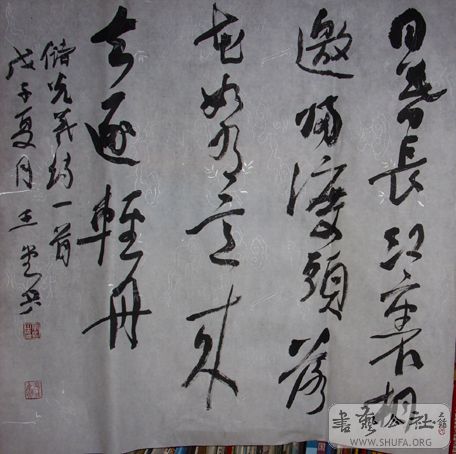 日暮長江裏相
邀歸渡頭落
花如有意來
去逐輕舟
儲光羲詩一首
戊子夏月 王
書藝公社
WWW.SHUFA.ORG